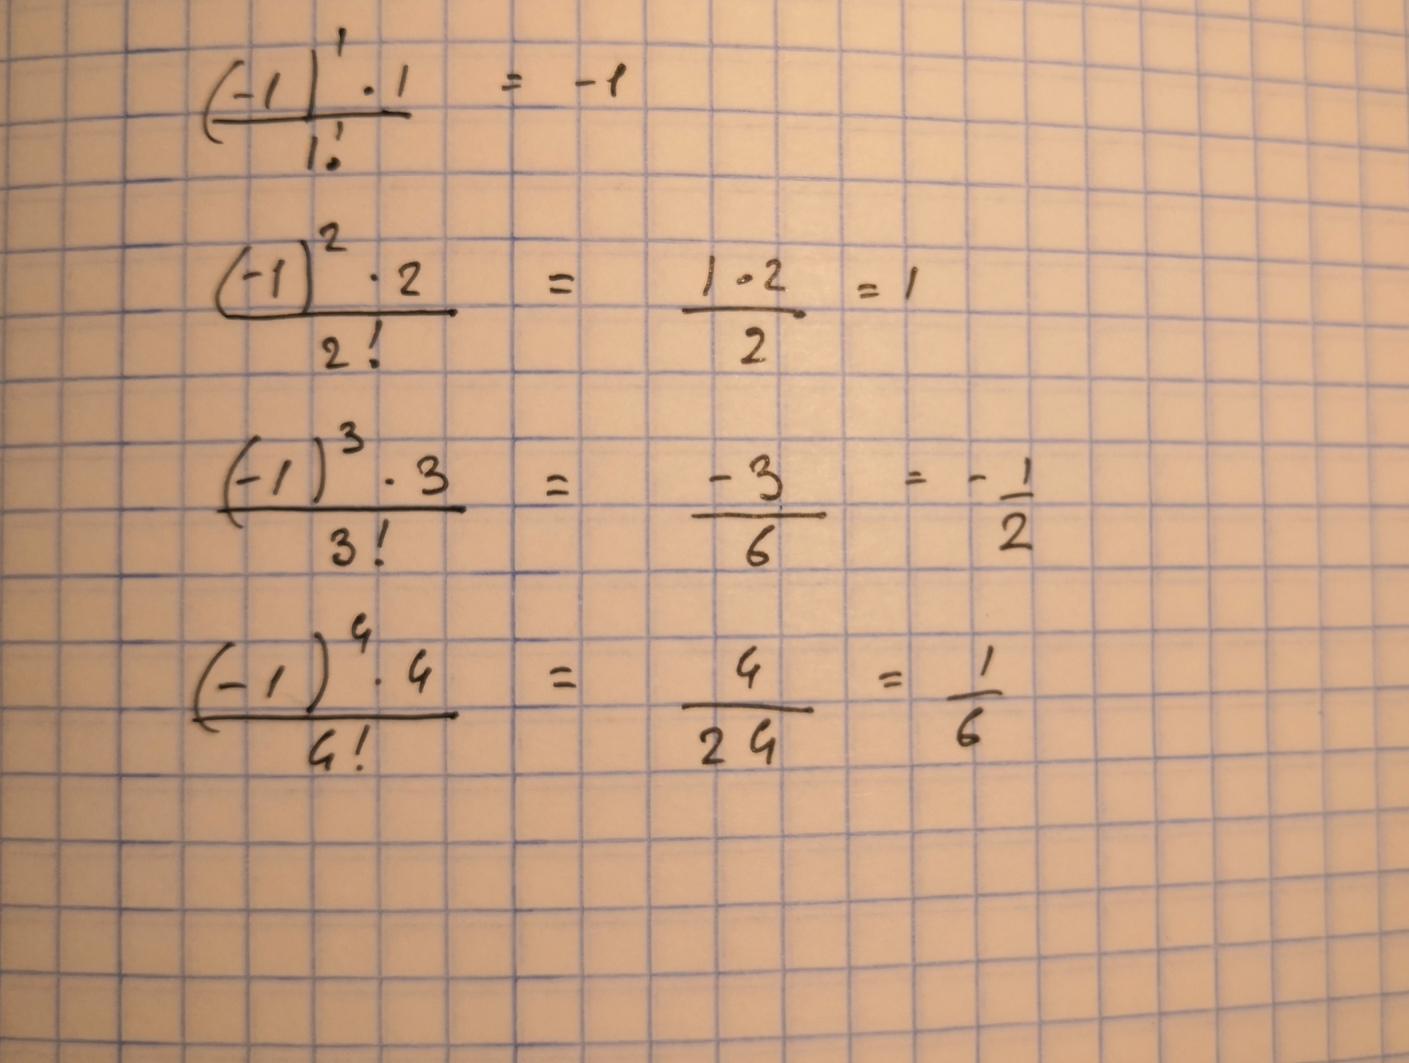 (-1)^1 · 1 / 1! = -1
(-1)^2 · 2 / 2! = 1 · 2 / 2 = 1
(-1)^3 · 3 / 3! = -3 / 6 = - 1/2
(-1)^4 · 4 / 4! = 4 / 24 = 1/6